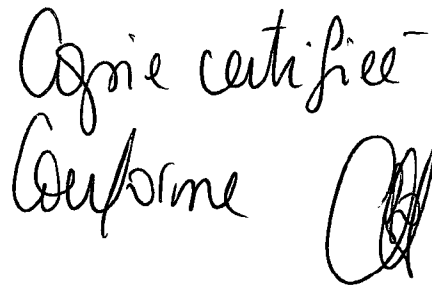 Copie certifiée
Conforme